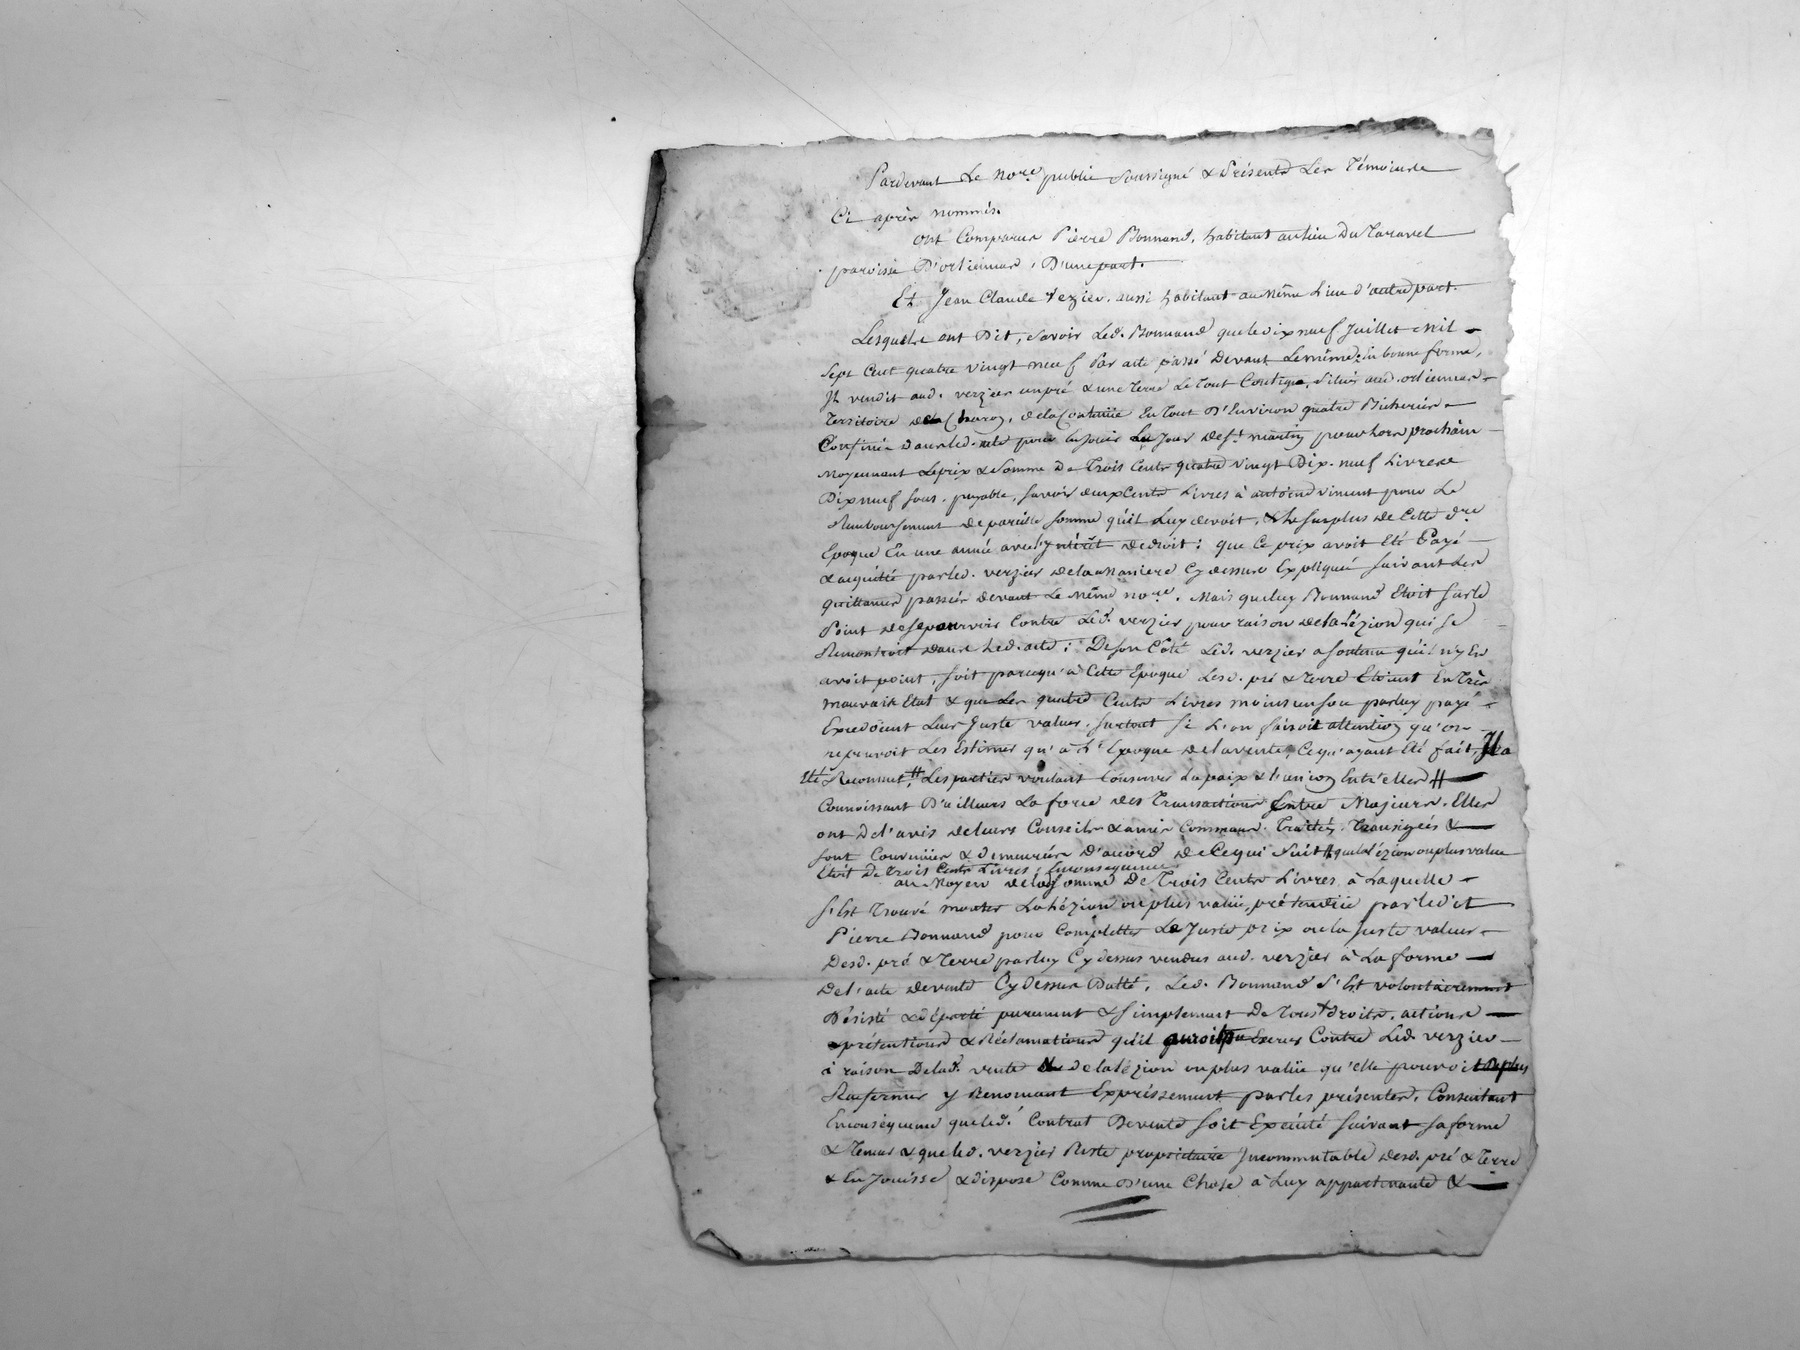 Pardevant Le no.re public Soussigné & Présents Les Témoins
Ci après nommés.
ont Comparus Pierre Bonnand, habitant au lieu Du Taravel
paroisse D'orliennas, D'une part.
Et Jean Claude Verzier, aussi habitant au même Lieu d'autre part.
Lesquels ont Dit, Savoir Led. Bonnand que le dix neuf Juillet mil
Sept Cent quatre vingt neuf Par acte passé Devant Le même, En bonne forme,
Il vendit aud. verzier un pré & une Terre Le Tout Contigu, Situés aud. orliennas
Territoire de la de la Contenüe En Tout D'Environ quatre Bicherées
Confiné dans led. acte pour En Jouir Le Jour de St. martin pour lors prochain
Moyennant Le prix & Somme De Trois Cents quatre Vingt Dix-neuf Livres
Dix neuf Sous, payable, Savoir deux Cents Livres à vinrent pour Le
Remboursement de pareille Somme qu'il Luy devoit, & le Surplus de Cette d.re
Epoque En une année avec l'yntérêt de droit : que Ce prix avoit Eté Payé
& acquitté par led. verzier de la maniere Cy dessus Expliquée Suivant Les
quittances passées devant Le Même no.re. Mais que luy Bonnand Etoit Sur le
Point de Se pourvoir Contre Led. verzier pour raison de la Lézion qui Se
Rencontroit dans Led. acte ; De Son Côté Led. verzier a Soutenu qu'il n'y En
avoit point, Soit parcequ'à Cette Epoque Lesd. pré & Terre Etoient En Très
mauvais Etat & que Les quatre Cents Livres moins un Sou par luy payé
Excedoient Leur Juste valeur, Surtout Si L'on faisoit attention qu'on
ne pouvoit Les Estimer qu'à L'Epoque de la vente, Ce qu'ayant Eté fait, Il a
Eté Reconnut, # Les parties voulant Conserver La paix & l'union Entr'elles #
Connoissant D'ailleurs La force des Transactions Entre Majeurs, Elles
ont De l'avis de leurs Conseils & amis Communs Traités, Transigées &
Sont Convenües & demeurées D'accord de Ce qui Suit # que la Lézion ou plus value
Etoit De Trois Cents Livres, En conséquence
au Moyen de la Somme De Trois Cents Livres à Laquelle
S'Est Trouvé monter La Lézion ou plus valüe, prétendüe par ledit
Pierre Bonnand pour Completter Le Juste prix ou la Juste valeur
Desd. pré & Terre par luy Cy dessus vendus aud. verzier à La forme
De l'acte de vente Cy Dessus Datté, Led. Bonnand S'Est volontairement
Désisté & départé purement & Simplement De Tous droits, actions
prétentions & Réclamations qu'il auroit pu Exercer Contre Led. verzier
à raison De lad. vente de la Lézion ou plus valüe qu'elle pouvoit De plus
Renfermer y Renonçant Expréssement par les présentes, Consentant
En conséquence que led. Contrat De vente Soit Exécuté Suivant Sa forme
& Teneur & que led. verzier Reste propriétaire Incommutable desd. pré & Terre
& En Jouisse & dispose Comme D'une Chose à Luy appartenante &